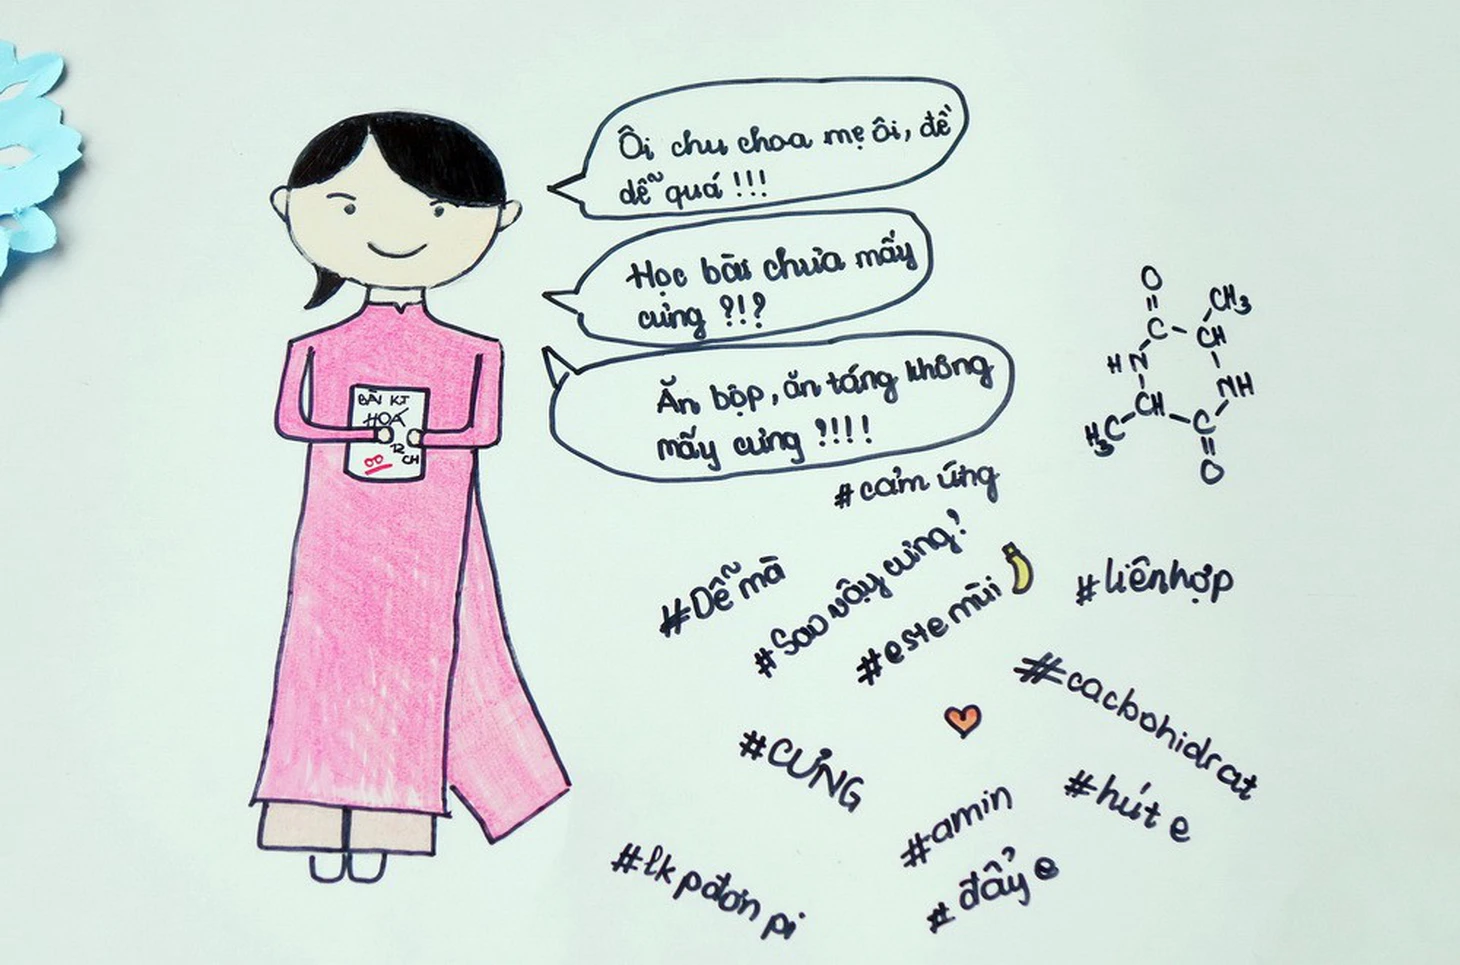 Ôi chu choa mẹ ôi, đề
dễ quá !!!
Học bài chưa mấy
cưng ?!?
Ăn bộp, ăn táng không
mấy cưng !!!!
BÀI KT
HOÁ
12
CH
00
O
CH3
C
CH
HN
NH
CH
C
H3C
O
#cảm ứng
#Dễ mà
#Sao vậy cưng!
#este mùi
#liên hợp
#cacbohidrat
#CƯNG
#hút e
#amin
#đẩy e
#lk p đơn pi